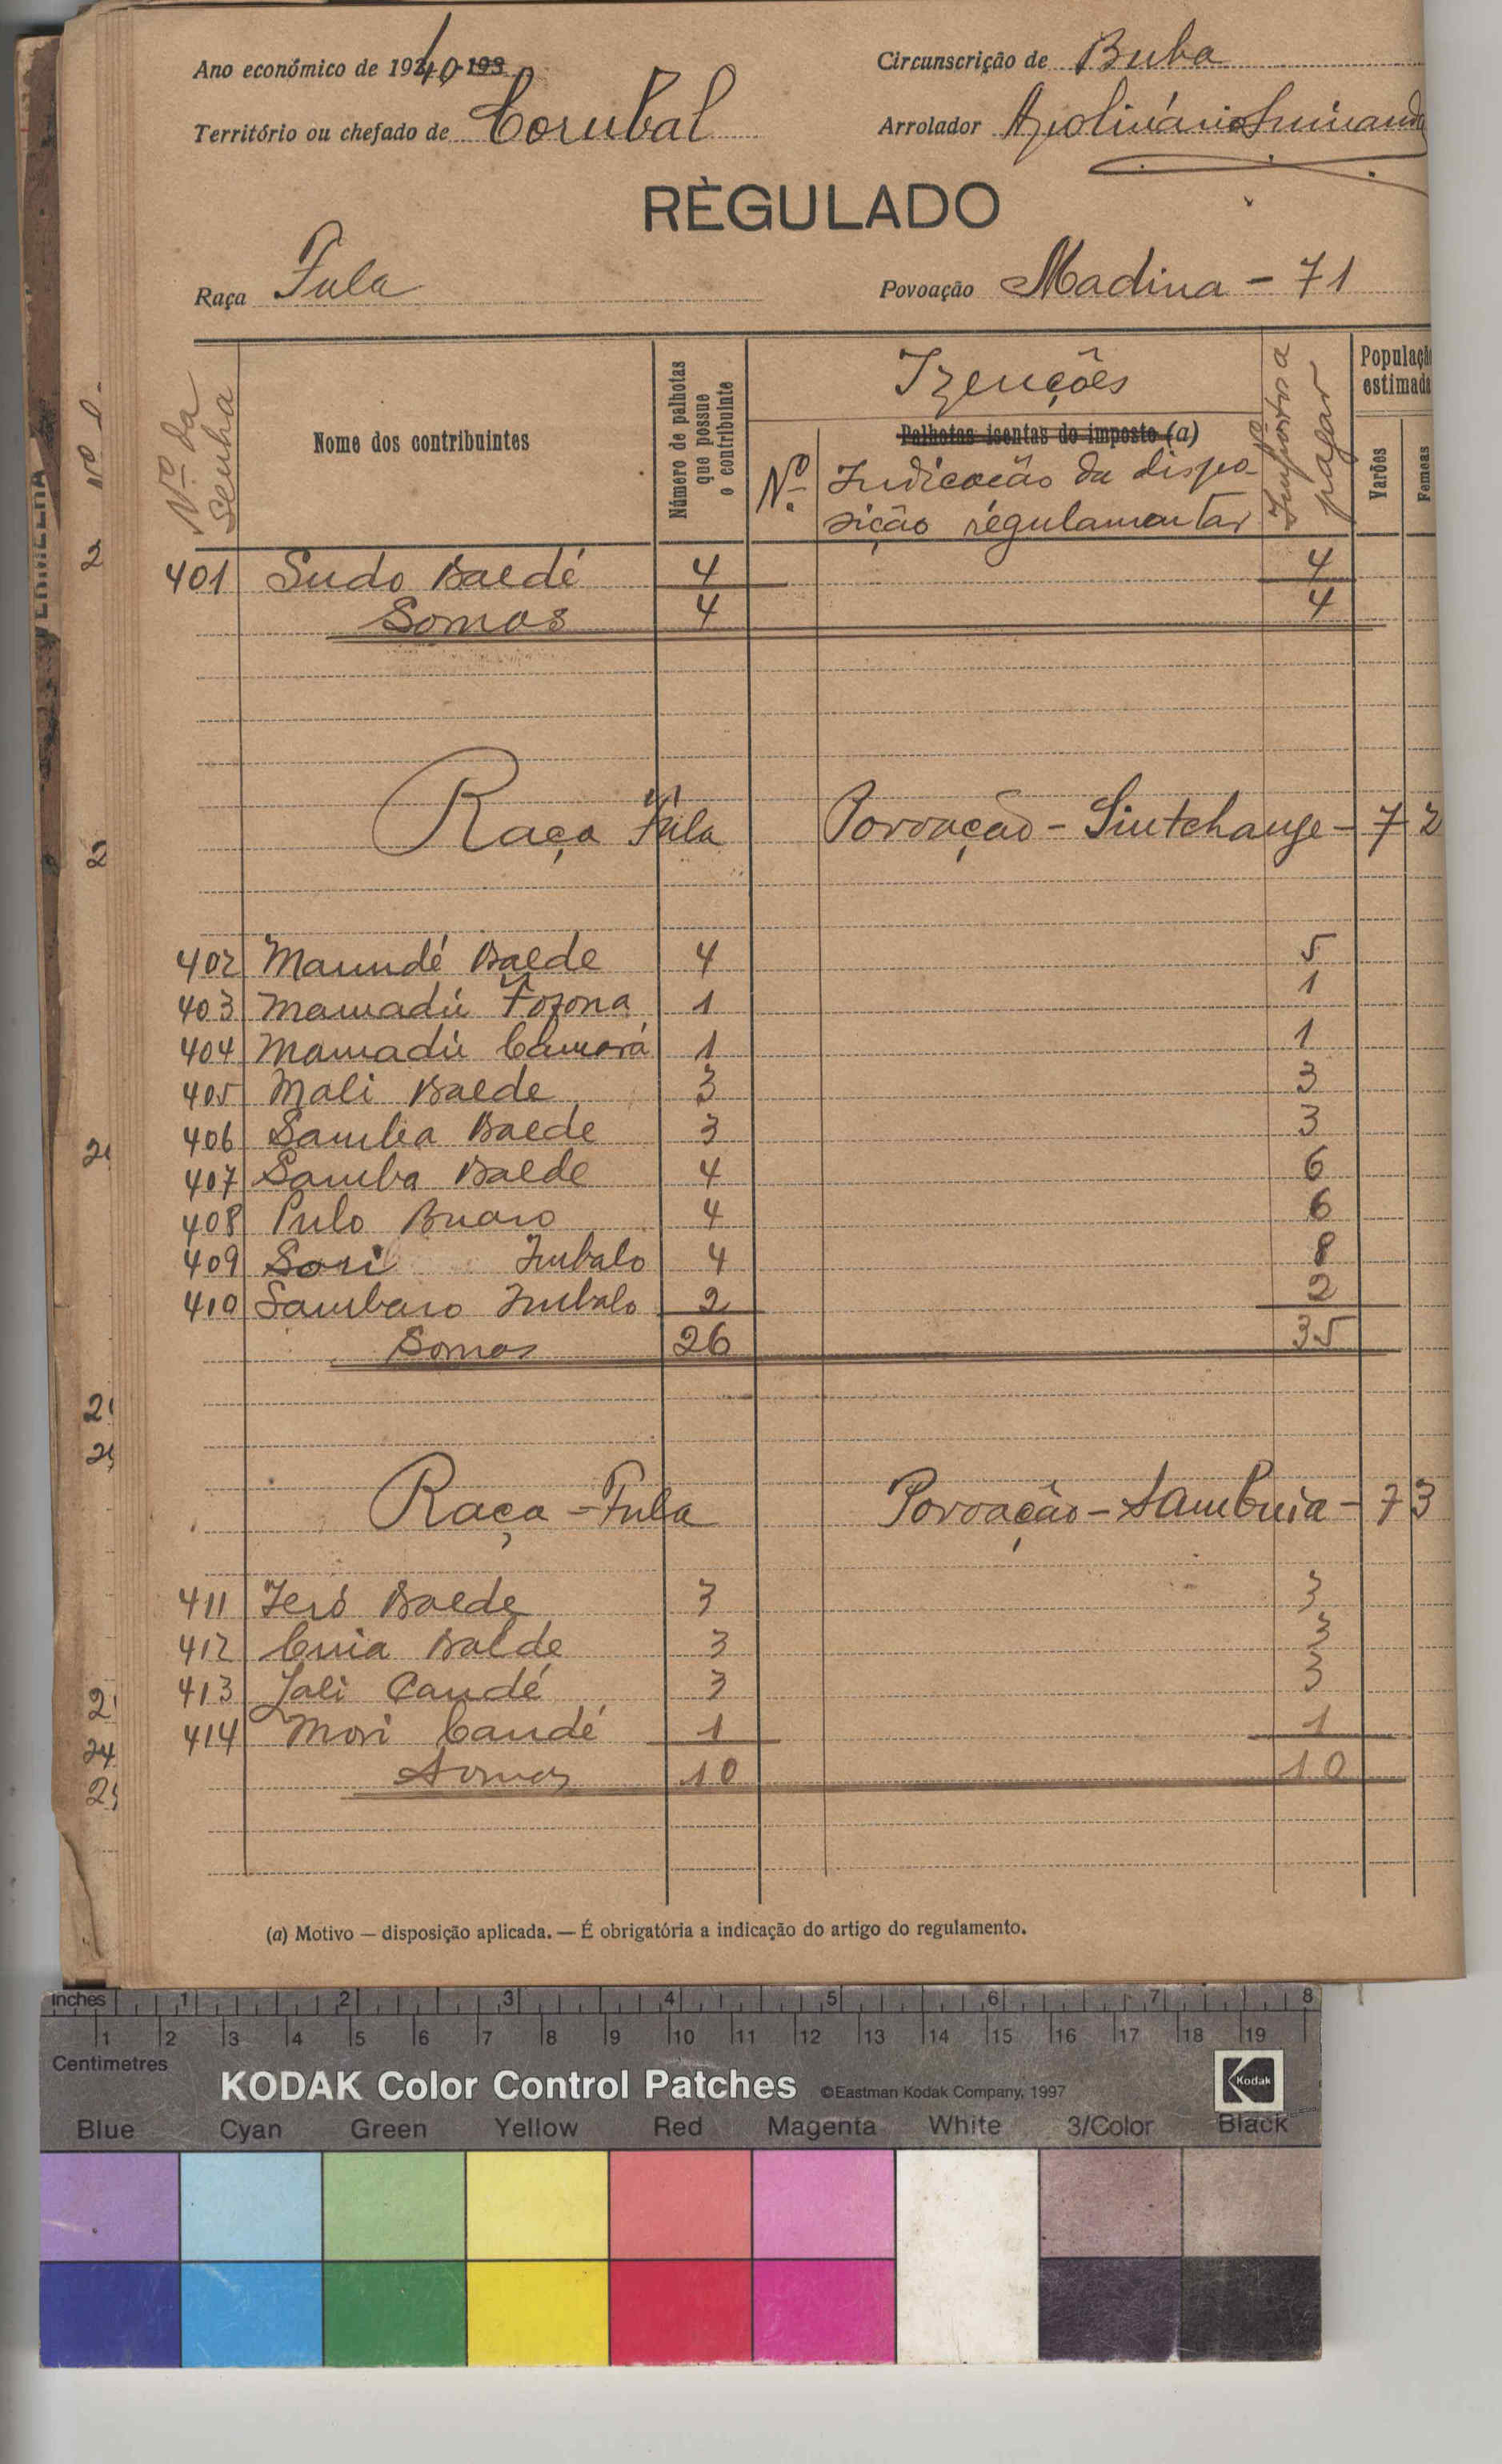 Ano económico de 1940-193
Circunscrição de Buba
Território ou chefado de Corubal
Arrolador Apolinário
RÈGULADO
Raça Fula
Povoação Madina - 71
Nº da Senha
Nome dos contribuintes
Número de palhotas que possue o contribuinte
Izenções
Palhotas isentas do imposto (a)
Nº
Indicação da dispo-
sição régulamentar
Impostos a pagar
Populaçã
estimada
Varões
Femeas
401 Sudo Baldé 4 4
Somas 4 4
Raça Fula Povoação - Sintchange - 72
402 Maundé Balde 4 5
403 Mamadú Fofona 1 1
404 Mamadú Camará 1 1
405 Mali Balde 3 3
406 Samba Balde 3 3
407 Samba Balde 4 6
408 Pulo Buaro 4 6
409 Sori Imbalo 4 8
410 Sambaro Imbalo 2 2
Somas 26 35
Raça - Fula Povoação - Sambuia - 73
411 Iéró Balde 3 3
412 Cuia Balde 3 3
413 Jali Candé 3 3
414 Mori Candé 1 1
Somas 10 10
(a) Motivo — disposição aplicada. — É obrigatória a indicação do artigo do regulamento.
inches 1 2 3 4 5 6 7 8
1 2 3 4 5 6 7 8 9 10 11 12 13 14 15 16 17 18 19
Centimetres
KODAK Color Control Patches ©Eastman Kodak Company, 1997 Kodak
Blue Cyan Green Yellow Red Magenta White 3/Color Black